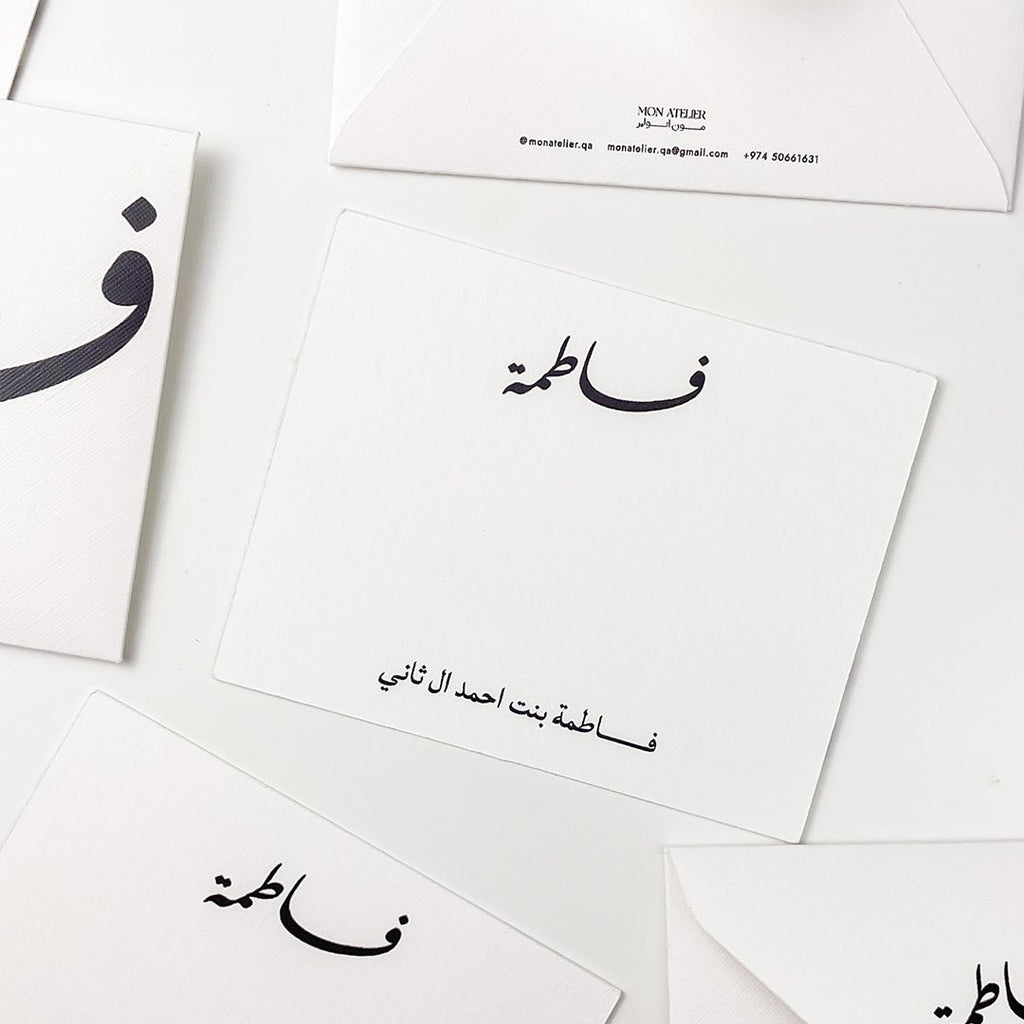 MON ATELIER
مــون اتــولير
@monatelier.qa monatelier.qa@gmail.com +974 50661631
ف
فـاطمة
فـــاطمة بنت احمد ال ثاني
فـاطمة